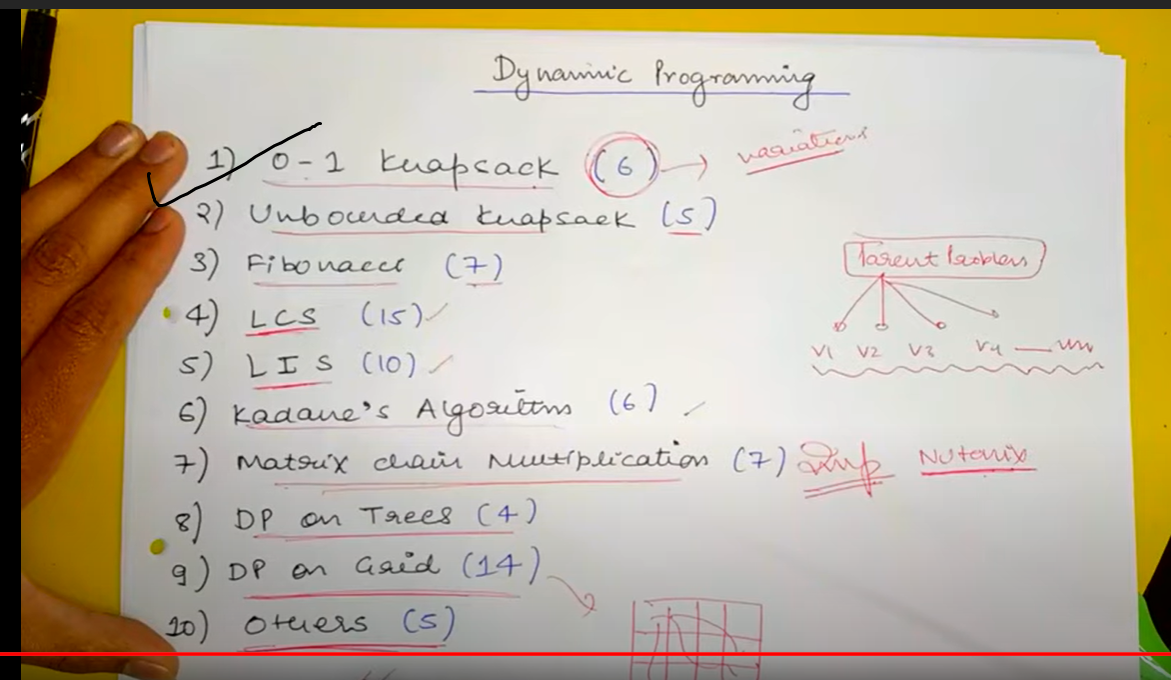 Dynamic Programming
1) 0-1 Knapsack (6) → variations
2) Unbounded Knapsack (5)
3) Fibonacci (7)
4) LCS (15) ✓
5) LIS (10) ✓
6) Kadane's Algorithm (6) ✓
7) Matrix chain Multiplication (7) Imp Nutanix
8) DP on Trees (4)
9) DP on Grid (14)
10) Others (5)
Parent Problem
V1 V2 V3 V4 — Vn